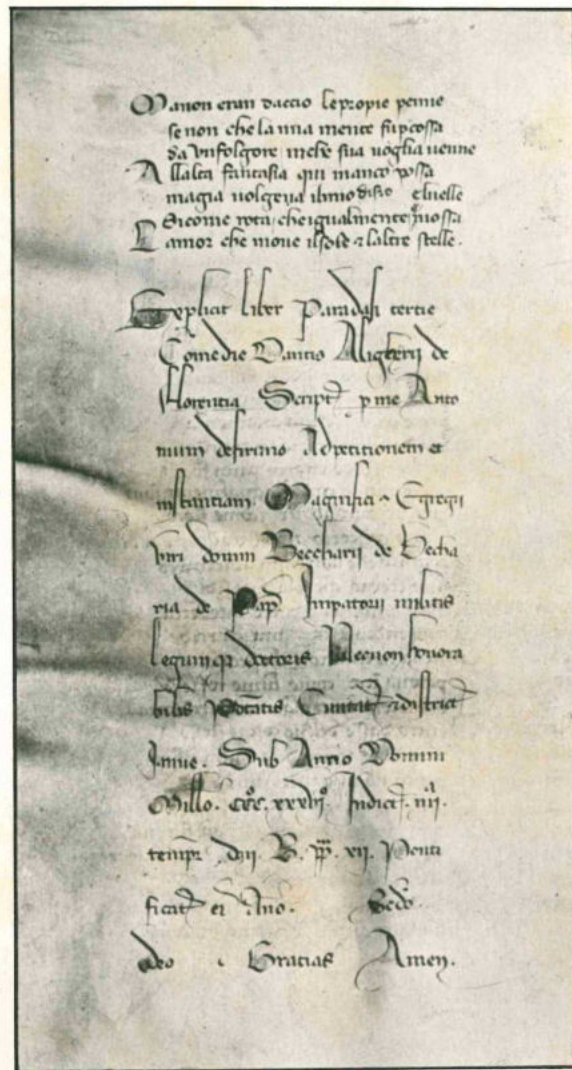 Manon eran daccio le propie penne
se non che la mia mente fu pcossa
da vn folgore inche sua uoglia uenne
All alta fantasia qui manco possa
magia uolgeua ilmio disio eluelle
Sicome rota che igualmente e mossa
Lamor che moue ilsole e laltre stelle.
Explicit liber Paradisi tertie
Comedie Dantis Aligherij de
Florentia Script p me Anto
nium defirmo Adpetitionem et
instantiam Magnifici e Egregij
viri domini Beccharij de Becha
ria de Pap Impatorij militis
legumqz doctoris Necnon honora
bilis Potatis Ciuitat e district
Janue. Sub Anno Domini
Millo. ccc. xxxvj. Indict. iiij.
tempr dni B. pp. xij. Ponti
ficat ei Ano. Scdo
deo Gracias Amen.